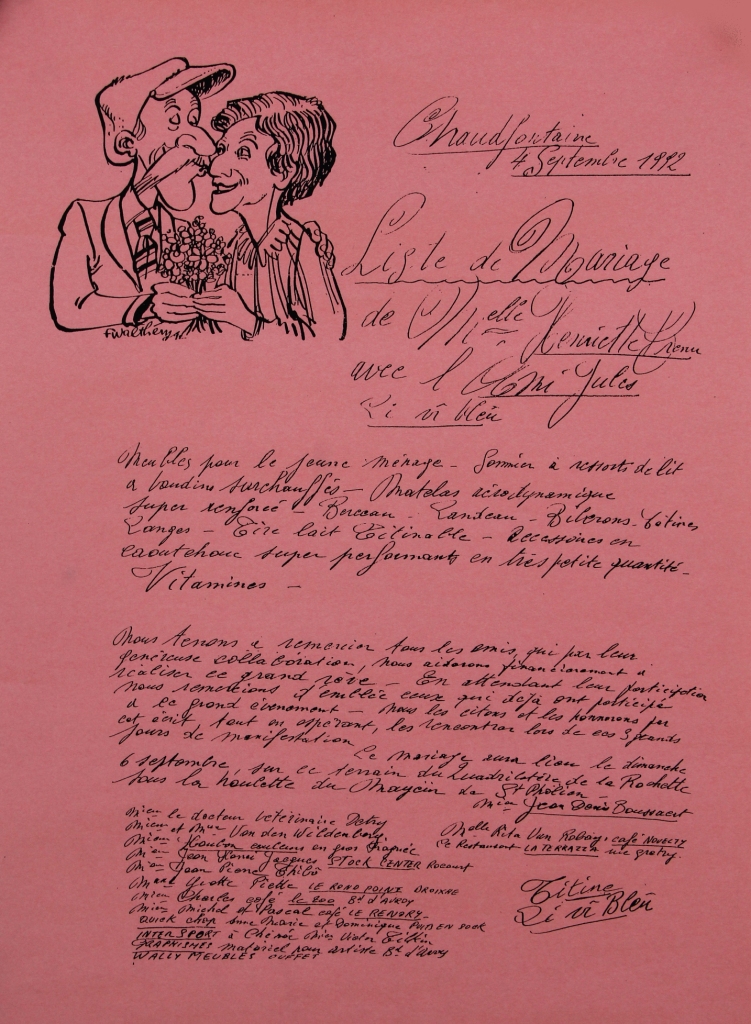 Chaudfontaine
4 Septembre 1992
Liste de Mariage
de Melle Henriette
avec l'Ami Jules
Li vî bleû
F Walthéry
Meubles pour le jeune ménage - Sommier à ressorts de lit
a boudins surchauffés - Matelas aérodynamique
super renforcé - Berceau - Landeau - Biberons - Tétines
Langes - Tire lait Titinable - Accessoires en
caoutchouc super performants en très petite quantité -
Vitamines -
Nous tenons a remercier tous les amis, qui par leur
généreuse collaboration, nous aiderons financièrement a
réaliser ce grand rêve - En attendant leur participation
nous remercions d'emblée ceux qui déjà ont participé
a ce grand évènement - Nous les citons et les honorons par
cet écrit, tout en espérant, les rencontrer lors de ces 3 grands
jours de manifestation
Le mariage aura lieu le dimanche
6 septembre, sur ce terrain du Quadrilatère de la Rochette
sous la houlette du Mayeur de St Pholien -
Jean Denis Boussart
le docteur vétérinaire Detry
et Mme Van den Wildenberg
couleurs en gros
Jean Louis Jacques STOCK CENTER Rocourt
Jean Pierre
Piette LE ROND POINT DROIXHE
Charles café le 200 Bd d'AVROY
Michel et Pascal café LE RENORY -
QUICK CHOP Anne Marie et Dominique
INTER SPORT à Chênée Victor
GRAPHISMES matériel pour artiste Bd d'Avroy
WALLY MEUBLES OUFFET
Melle Rita Van café NOVELTY
Le Restaurant LA TERRAZZA rue
Titine
Li vî Bleû